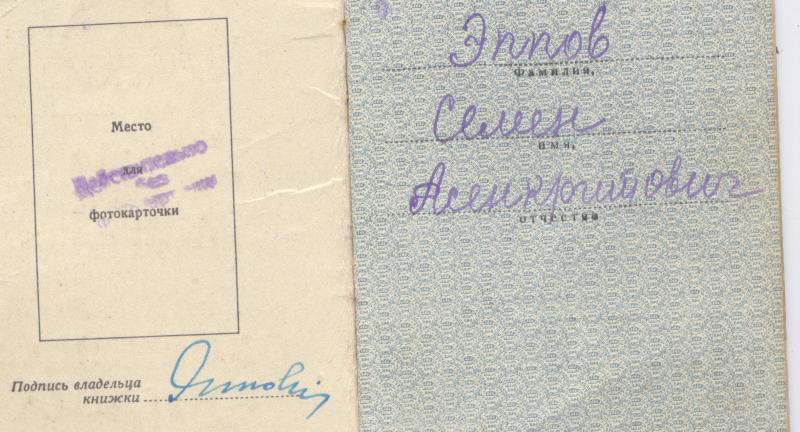 Место
для
фотокарточки
Действительно
без
Подпись владельца
книжки
Эппов
Фамилия,
Семен
имя,
отчество